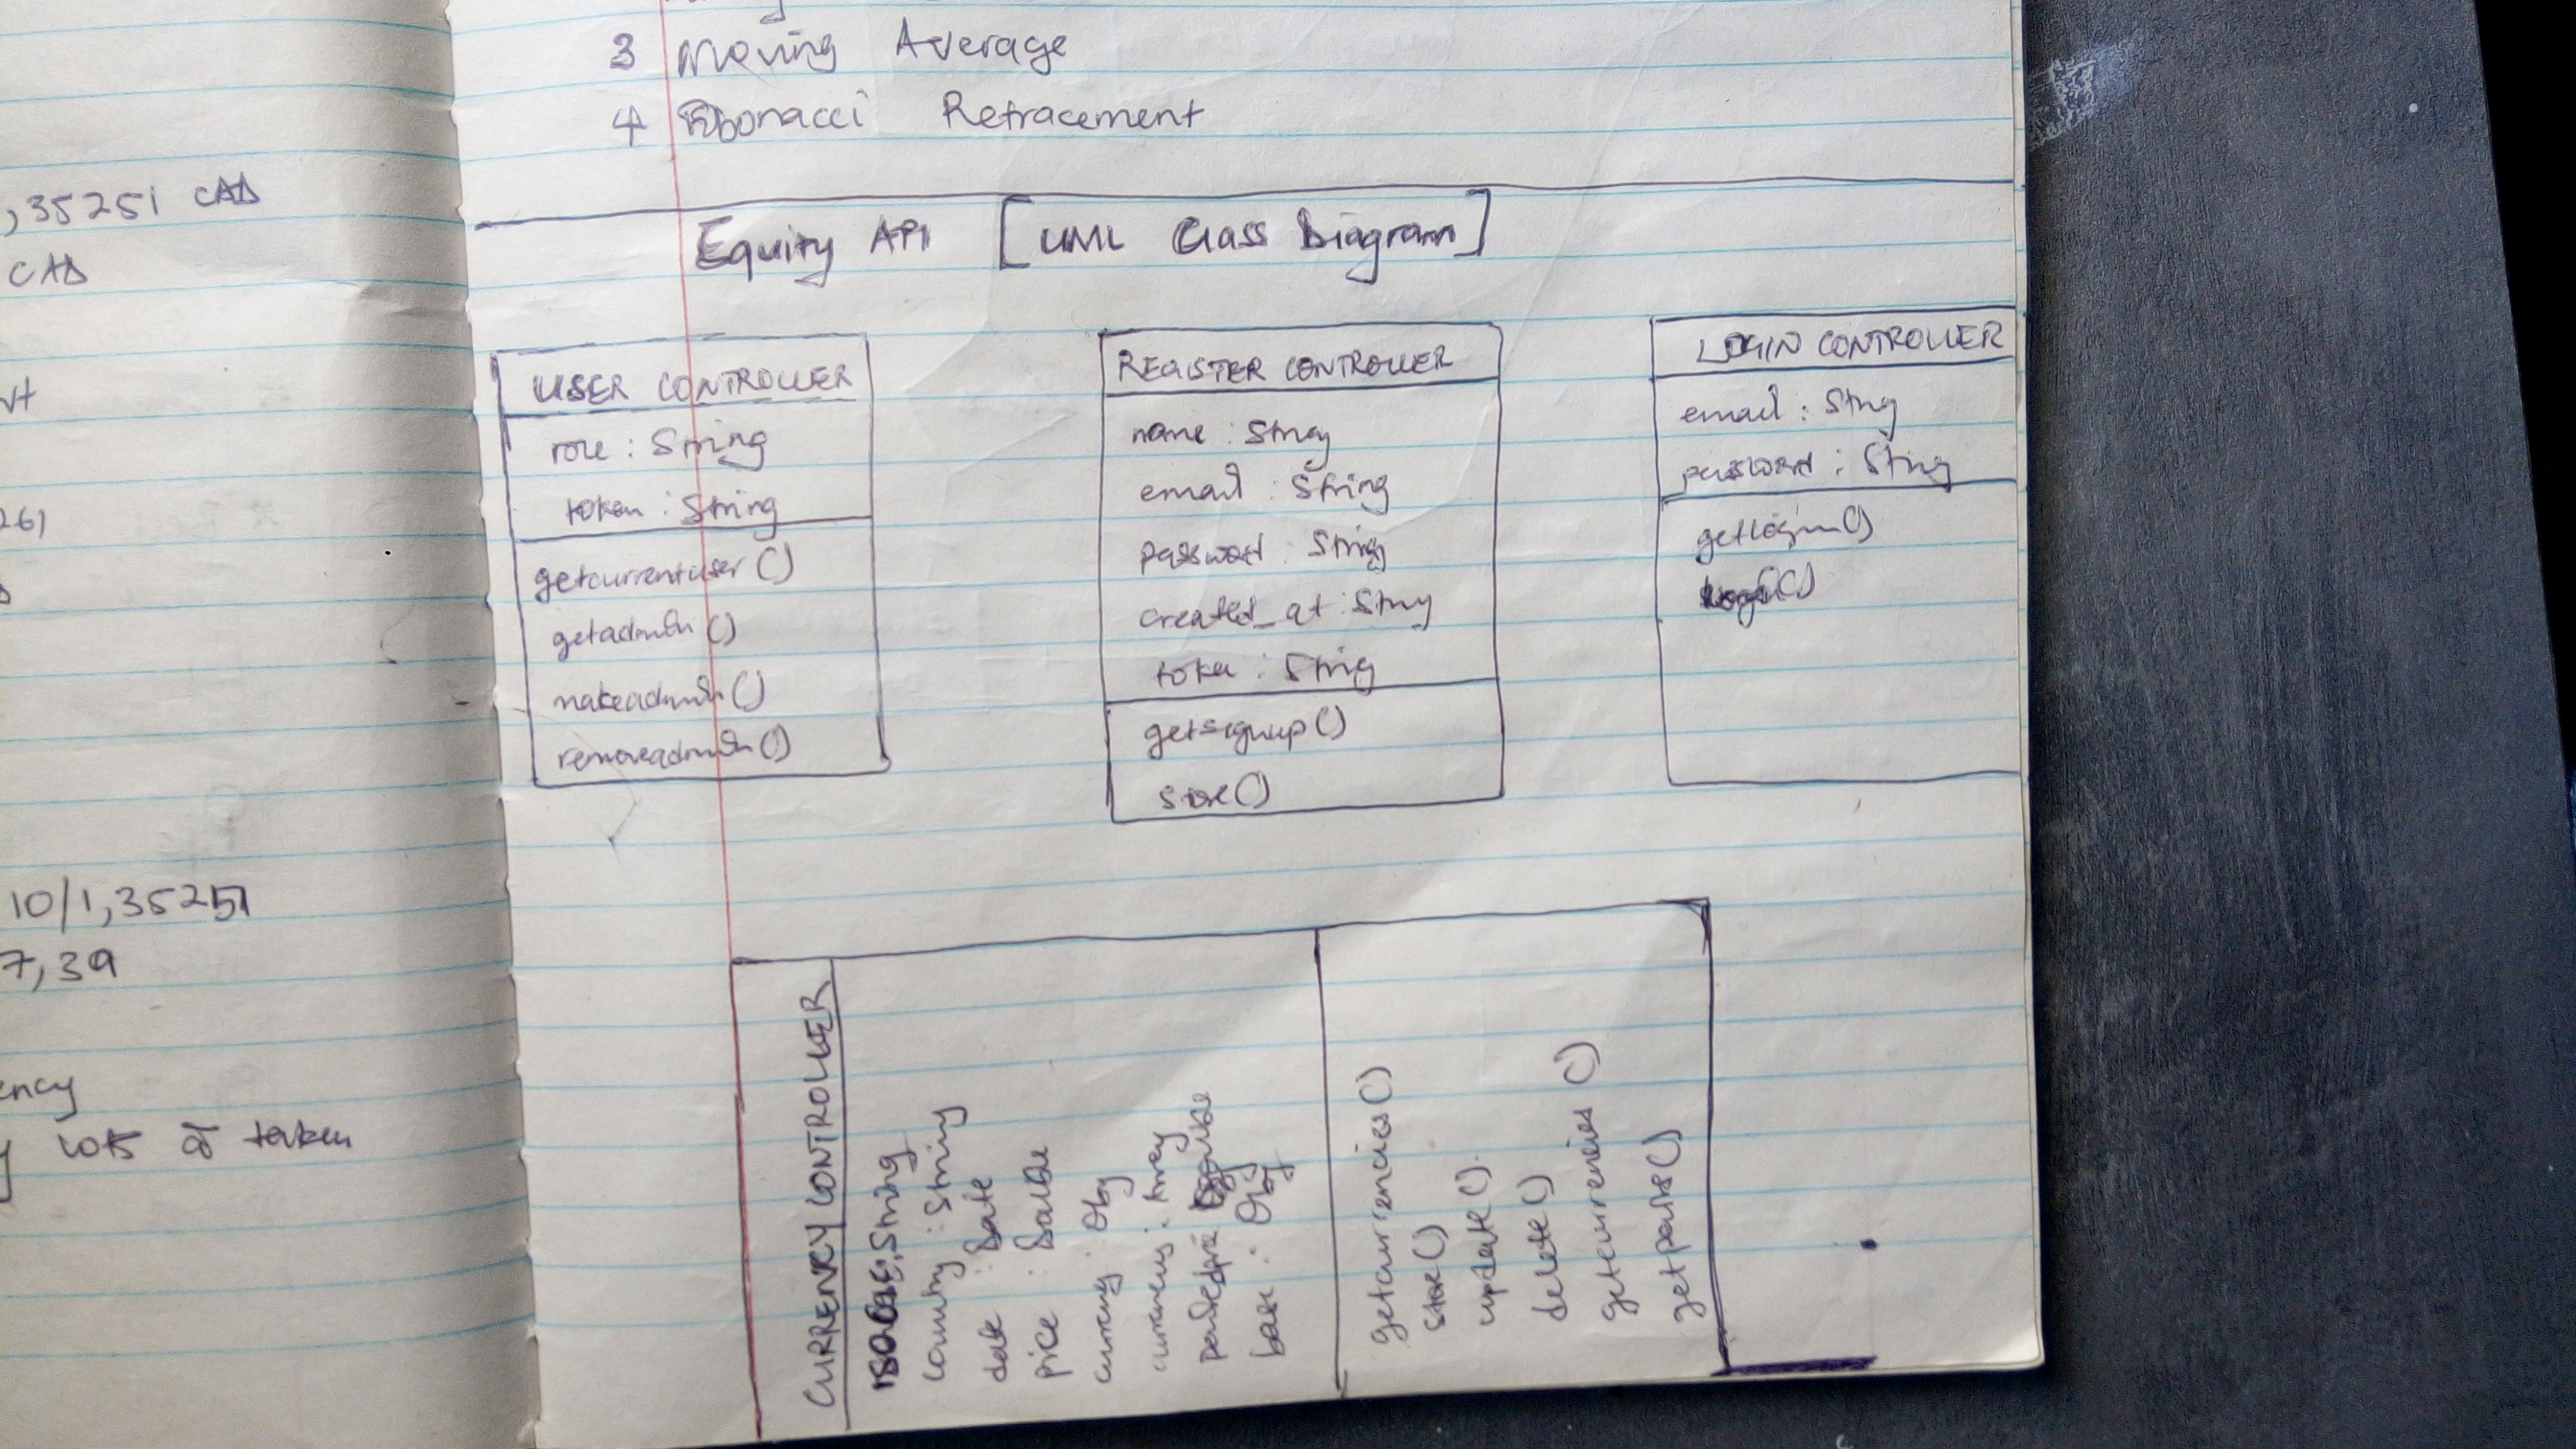 , 35251 CAD
CAD
10/1,35251
7,39
lots of taken
3 Moving Average
4 Fibonacci Retracement
Equity API [UML Class Diagram]
USER CONTROLLER
role : String
token : String
getcurrentuser ()
getadmin ()
makeadmin ()
removeadmin ()
REGISTER CONTROLLER
name : String
email : String
password : String
created_at : String
token : String
getsignup ()
store ()
LOGIN CONTROLLER
email : String
password : String
getlogin ()
login ()
CURRENCY CONTROLLER
String
country : String
date : Date
price : Double
currency : Obj
currency : Array
base : Obj
getcurriencies ()
store ()
update ().
delete ()
getcurriencies ()
getpairs ()